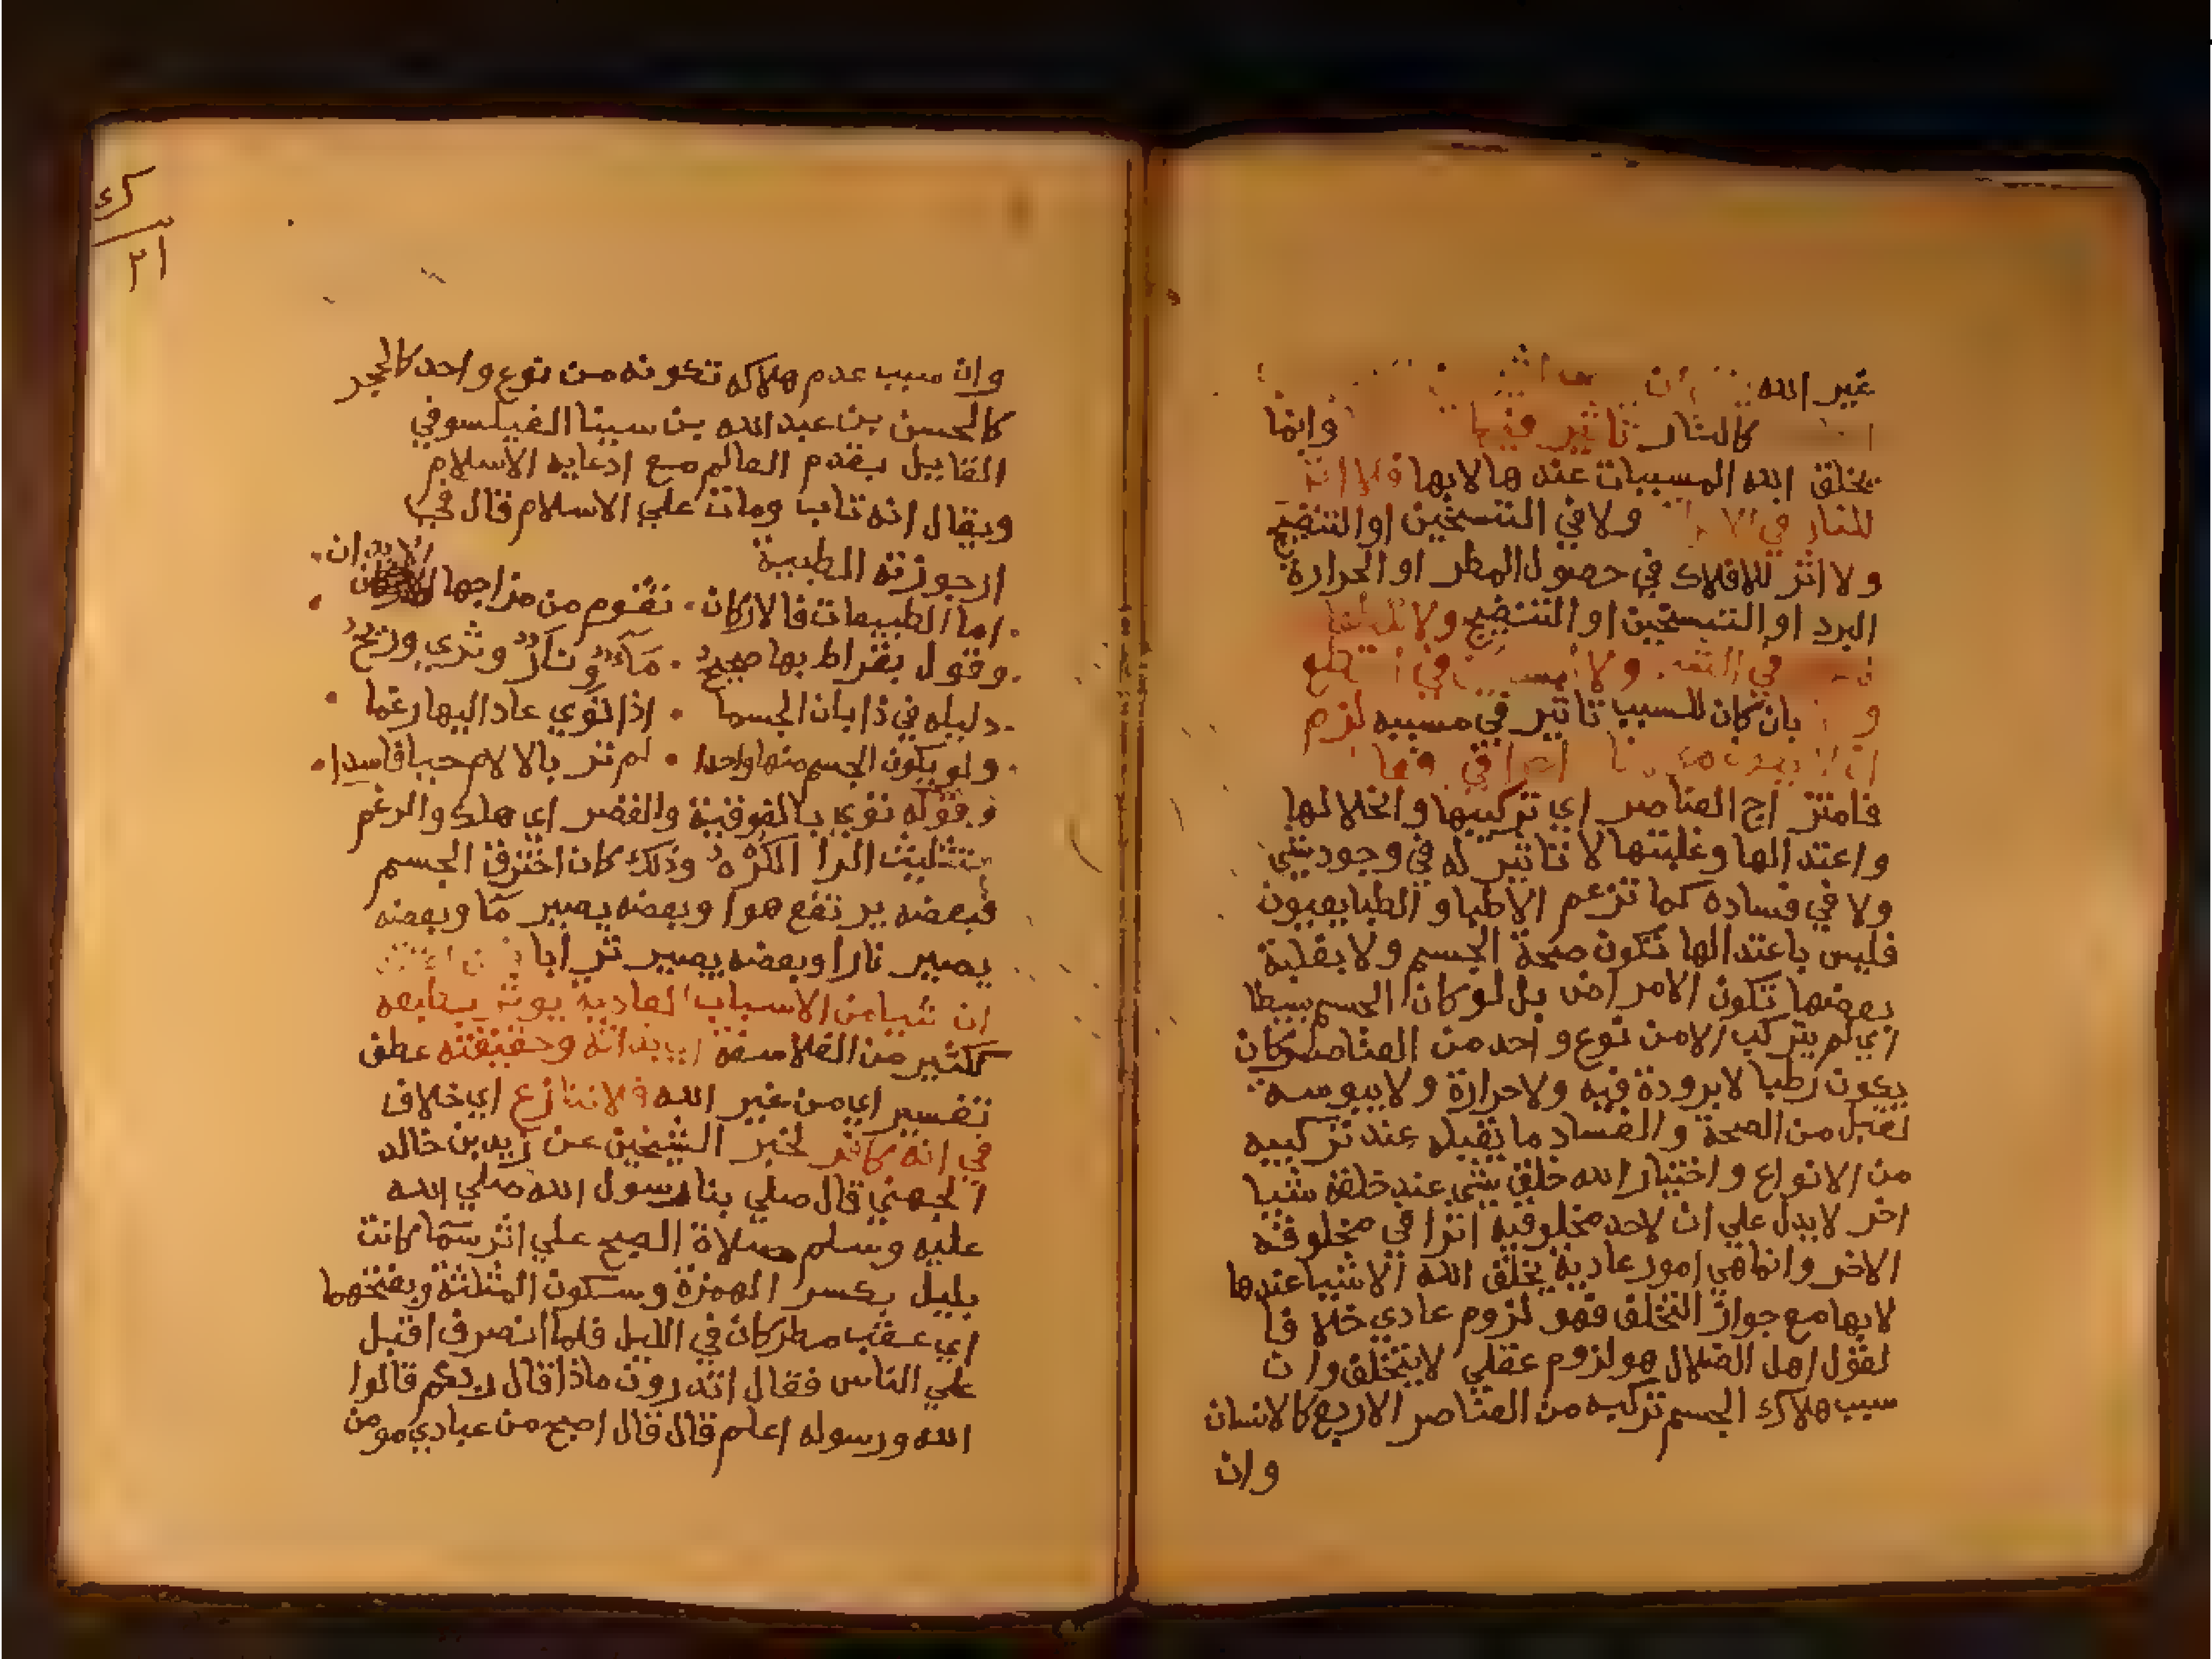 غير الله
كالنار تاثير فيها وانما
يخلق الله المسببات عندها لا بها فلا اثر
للنار في ولا في التسخين او التنضيج
ولا اثر للافلاك في حصول المطر او الحرارة
البرد او التسخين او التنضيج ولا
في ولا في
و بان كان للسبب تاثير في مسببه لزم
فامتزاج العناصر اي تركيبها وانحلالها
واعتدالها وغلبتها لا تاثير له في وجود شي
ولا في فساده كما تزعم الاطبا والطبايعيون
فليس باعتدالها تكون صحة الجسم ولا بغلبة
بعضها تكون الامراض بل لو كان الجسم بسيطا
اي لم يتركب الا من نوع واحد من العناصر لو كان
يكون رطبا لا برودة فيه ولا حرارة ولا يبوسه
لقبل من الصحة والفساد ما يقبله عند تركيبه
من الانواع واختيار الله خلق شي عند خلقه شيا
اخر لا يدل علي ان لاحد مخلوقيه اثرا في مخلوقه
الاخر وانما هي امور عادية يخلق الله الاشيا عندها
لا بها مع جواز التخلف فهو لزوم عادي خلافا
لقول اهل الضلال هو لزوم عقلي لا يتخلف وان
سبب هلاك الجسم تركيبه من العناصر الاربع كالانسان
وان
٢١
وان سبب عدم هلاكه تكونه من نوع واحد كالحجر
كالحسن بن عبد الله بن سينا الفيلسوفي
القايل بقدم العالم مع ادعايه الاسلام
ويقال انه تاب ومات علي الاسلام قال في
ارجوزته الطبية
اما الطبيعات فالاركان تقوم من مزاجها الابدان
وقول بقراط بها صحيح مآء ونار وثري وريح
دليله في ذا بان الجسما اذا توي عاد اليها رغما
ولو يكون الجسم منها واحدا لم تر بالالام حيا فاسدا
وقوله توي بالفوقية والقصر اي هلك والرغم
بتثليث الرا الكره وذلك كان اخترق الجسم
فبعضه يرتفع هوا وبعضه يصير مآ وبعضه
يصير نارا وبعضه يصير ترابا
ان شيا من الاسباب العادية يوثر بطبعه
ككثير من الفلاسفة اي بذاته وحقيقته عطف
تفسير اي من غير الله فلا نزاع اي خلاف
في انه كافر لخبر الشيخين عن زيد بن خالد
الجهني قال صلي بنا رسول الله صلي الله
عليه وسلم صلاة الصبح علي اثر سما كانت
بليل بكسر الهمزة وسكون المثلثة وبفتحهما
اي عقب مطر كان في الليل فلما انصرف اقبل
علي الناس فقال اتدرون ماذا قال ربكم قالوا
الله ورسوله اعلم قال قال اصبح من عبادي مومن